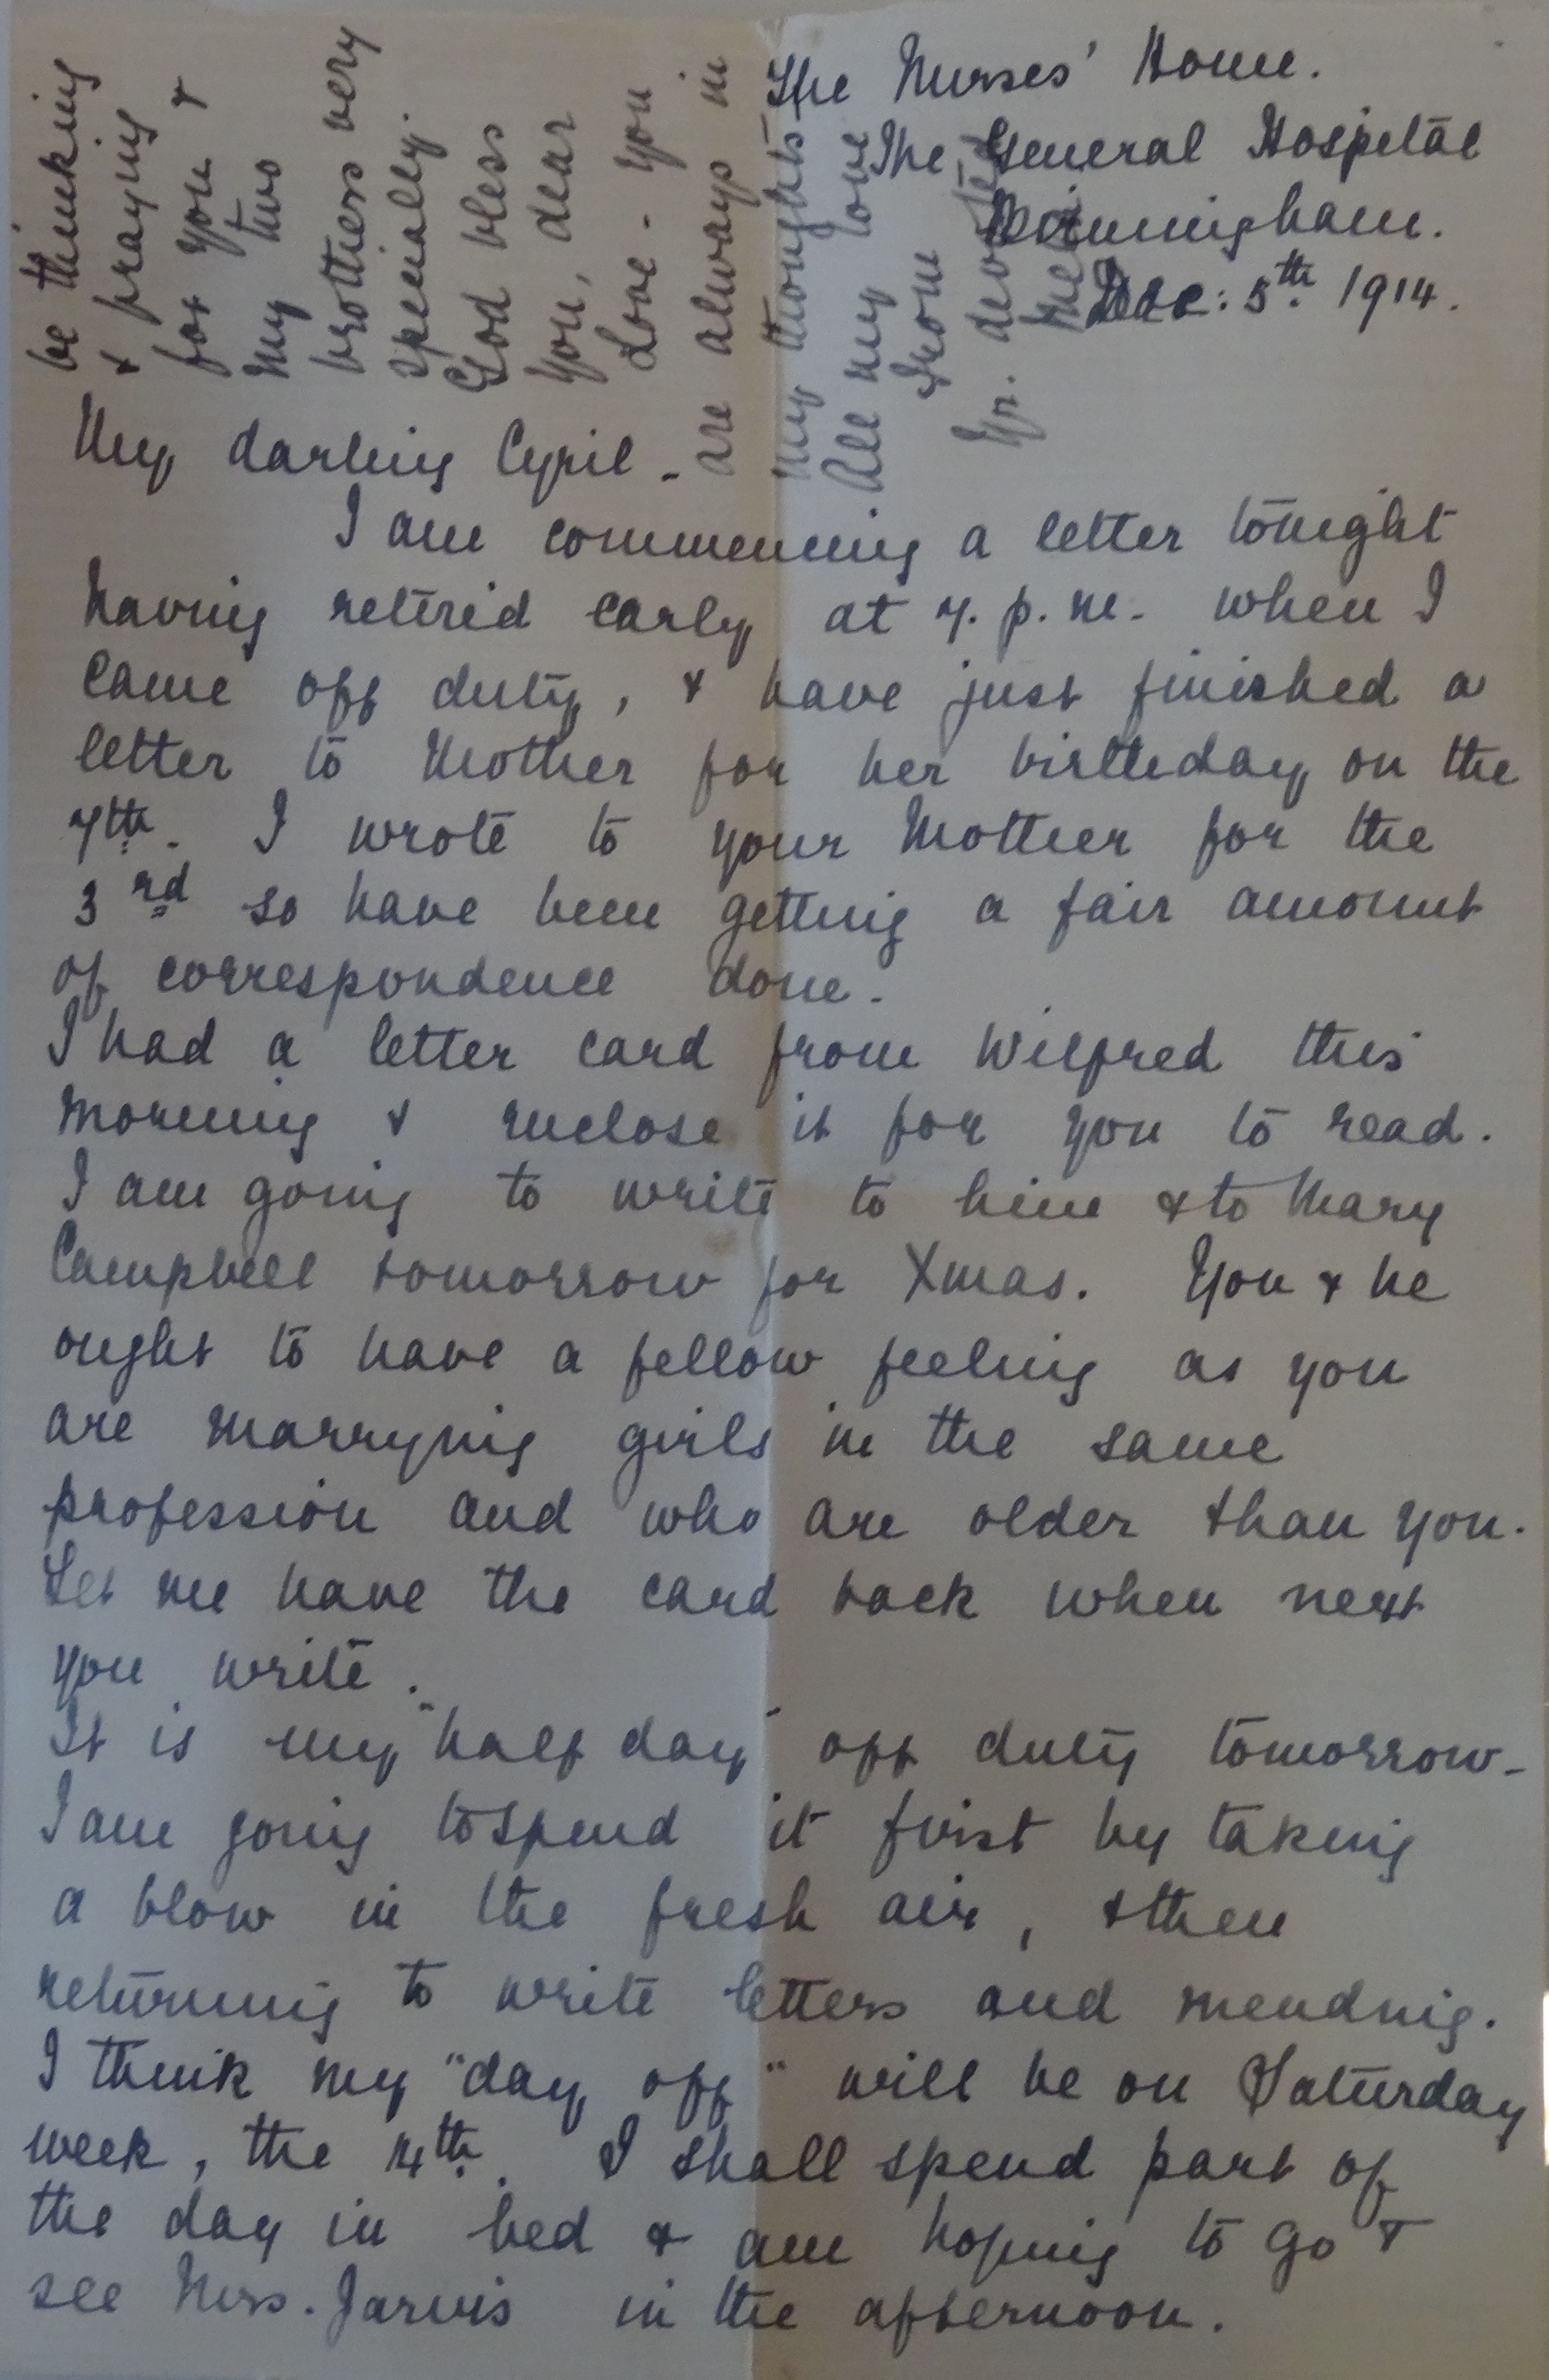 The Nurses' Home.
The General Hospital
Birmingham.
Dec: 5th. 1914.
My darling Cyril -
I am commencing a letter tonight
having retired early at 7. p.m. when I
came off duty, & have just finished a
letter to Mother for her birthday on the
7th. I wrote to your Mother for the
3rd so have been getting a fair amount
of correspondence done.
I had a letter card from Wilfred this
morning & enclose it for you to read.
I am going to write to him & to Mary
Campbell tomorrow for Xmas. You & he
ought to have a fellow feeling as you
are marrying girls in the same
profession and who are older than you.
Let me have the card back when next
you write.
It is my "half day" off duty tomorrow -
I am going to spend it first by taking
a blow in the fresh air, & then
returning to write letters and mending.
I think my "day off" will be on Saturday
week, the 14th. I shall spend part of
the day in bed & am hoping to go &
see Mrs. Jarvis in the afternoon.
be thinking
& praying
for you &
my two
brothers very
specially.
God bless
you, dear
Love - you
are always in
my thoughts -
All my love
From
Yr. devoted